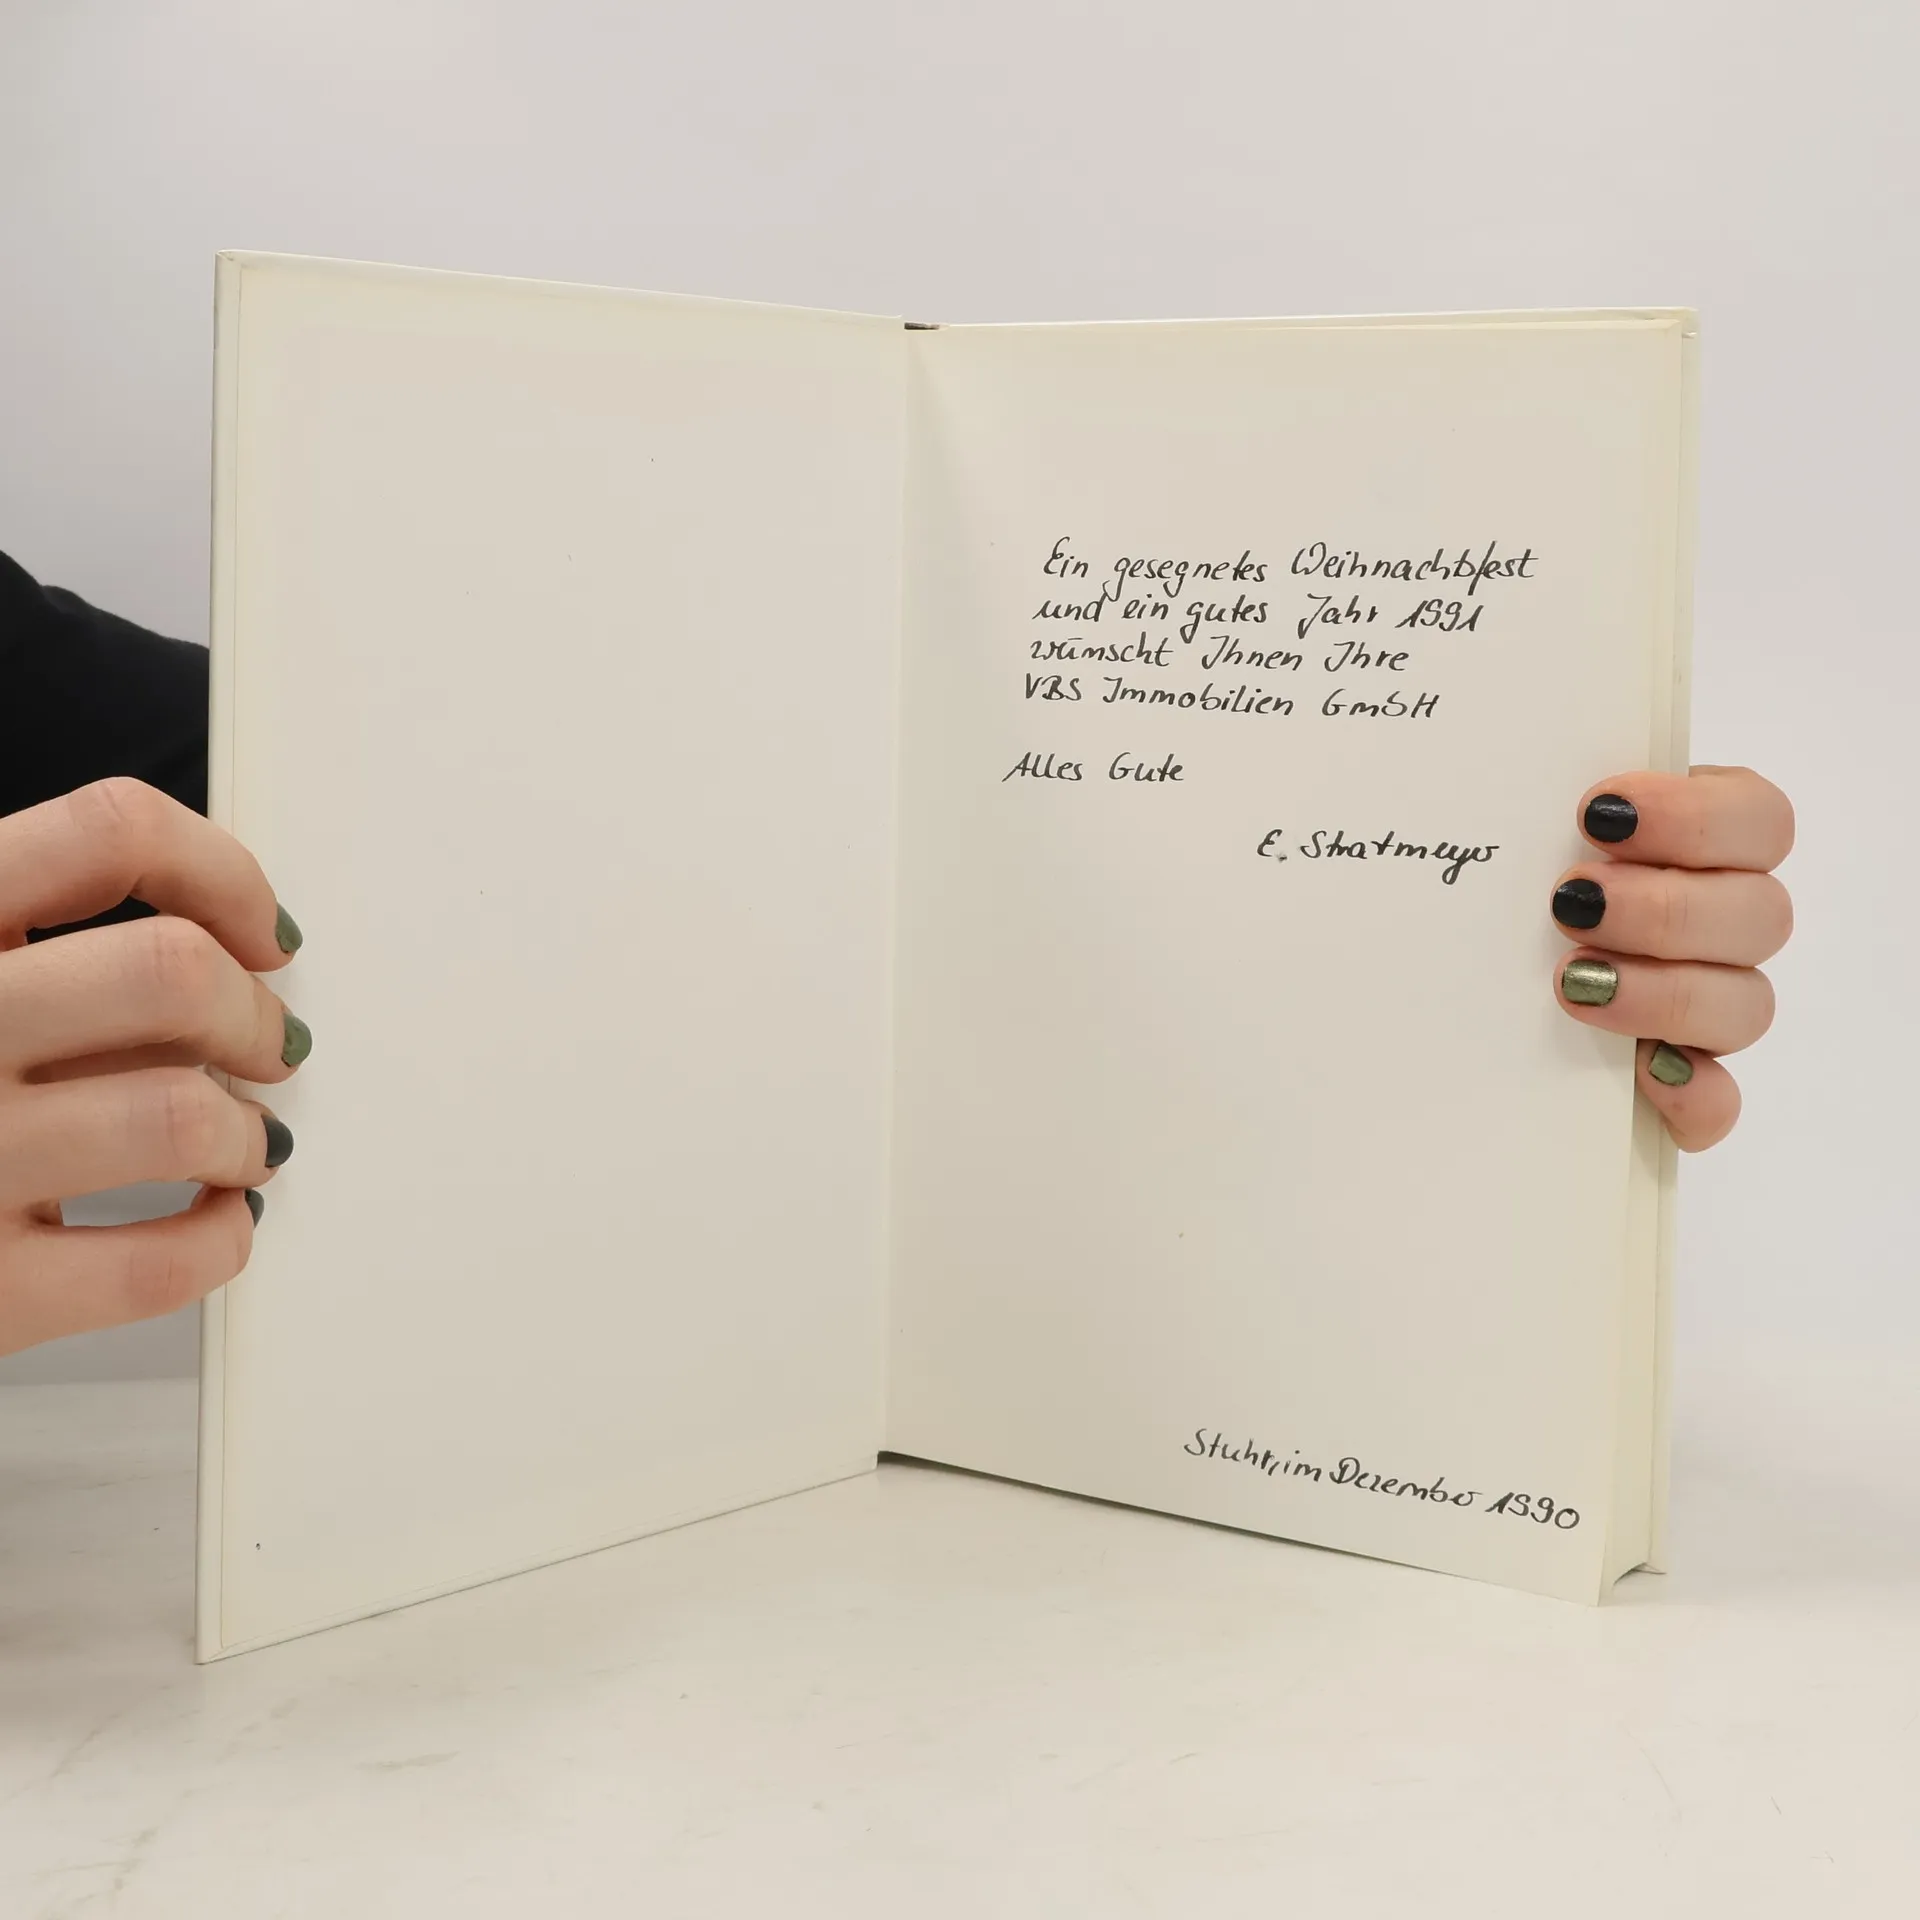 Ein gesegnetes Weihnachtsfest
und ein gutes Jahr 1991
wünscht Ihnen Ihre
VBS Immobilien GmbH
Alles Gute
E. Stratmeyer
Stuhr, im Dezember 1990